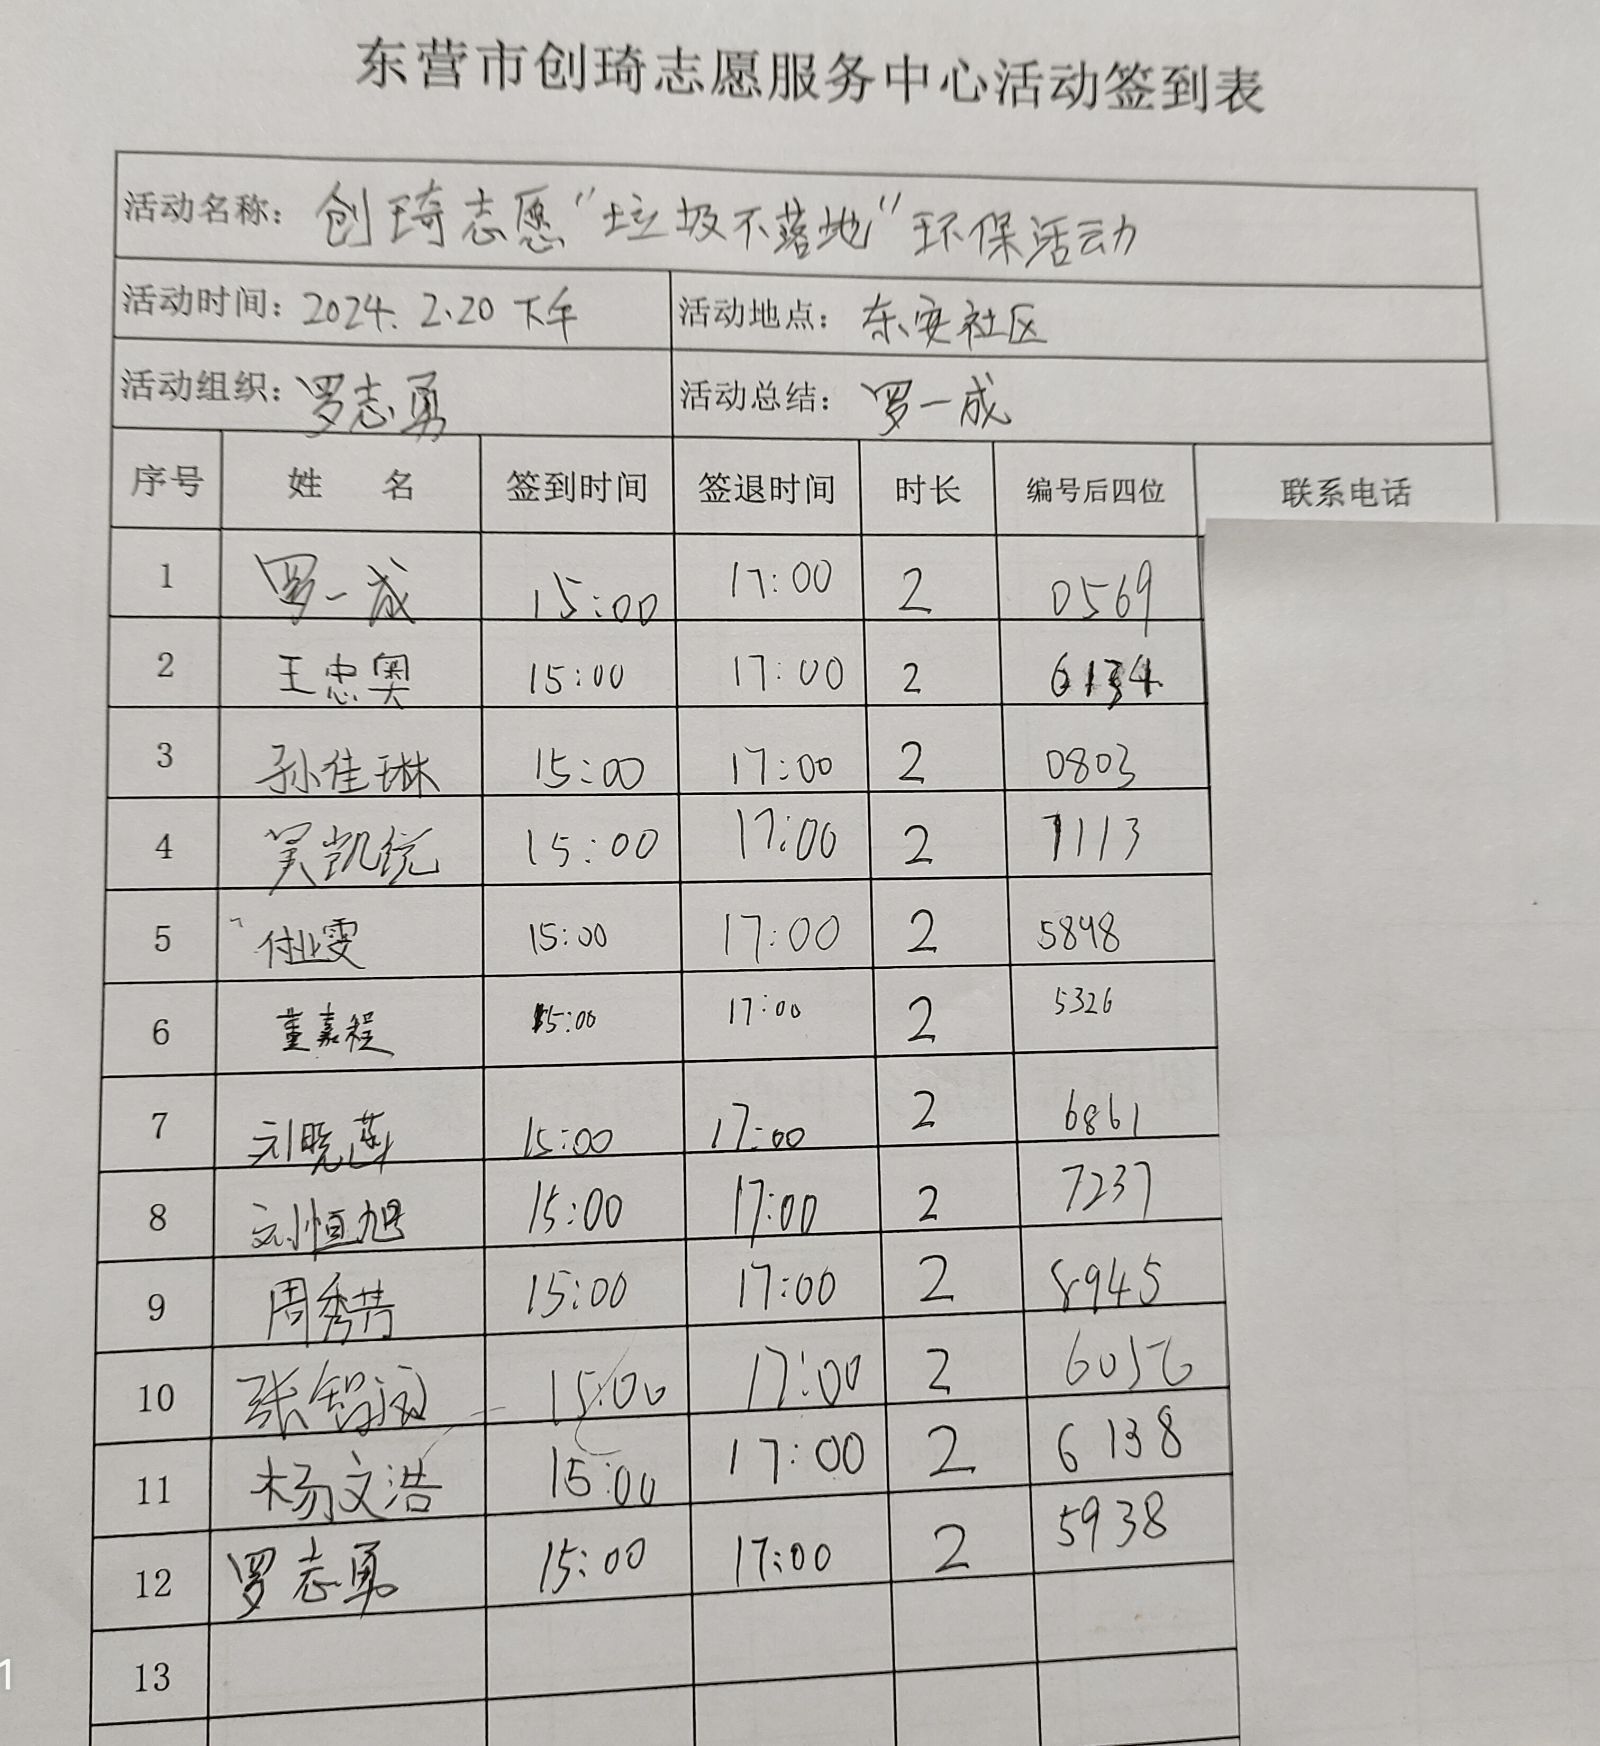 东营市创琦志愿服务中心活动签到表
活动名称：创琦志愿“垃圾不落地”环保活动
活动时间：2024.2.20 下午 活动地点：东安社区
活动组织：罗志勇 活动总结：罗一成
序号 姓 名 签到时间 签退时间 时长 编号后四位 联系电话
1 罗一成 15:00 17:00 2 0569
2 王忠奥 15:00 17:00 2 6134
3 孙佳琳 15:00 17:00 2 0803
4 吴凯统 15:00 17:00 2 1113
5 付业雯 15:00 17:00 2 5898
6 董嘉程 15:00 17:00 2 5326
7 刘晓莲 15:00 17:00 2 6861
8 刘恒旭 15:00 17:00 2 7237
9 周秀芳 15:00 17:00 2 8945
10 张智 15:00 17:00 2 6056
11 杨文浩 15:00 17:00 2 6138
12 罗志勇 15:00 17:00 2 5938
13
1